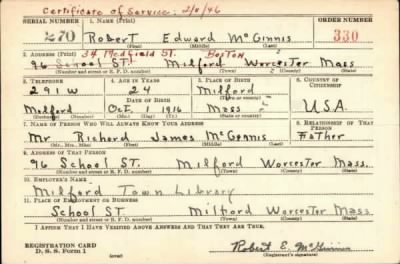 Certificate of Service: 2/11/46
SERIAL NUMBER 1. NAME (Print) ORDER NUMBER
270 Robert Edward McGinnis 330
(First) (Middle) (Last)
2. ADDRESS (Print) 34 Medfield ST. Boston
96 School ST. Milford Worcester Mass
(Number and street or R. F. D. number) (Town) (County) (State)
3. TELEPHONE 4. AGE IN YEARS 5. PLACE OF BIRTH 6. COUNTRY OF CITIZENSHIP
291W 24 Milford
DATE OF BIRTH (Town or county)
Milford Oct 1 1916 Mass USA
(Exchange) (Number) (Mo.) (Day) (Yr.) (State or country)
7. NAME OF PERSON WHO WILL ALWAYS KNOW YOUR ADDRESS 8. RELATIONSHIP OF THAT PERSON
Mr Richard James McGinnis Father
(Mr., Mrs., Miss) (First) (Middle) (Last)
9. ADDRESS OF THAT PERSON
96 School ST. Milford Worcester Mass.
(Number and street or R. F. D. number) (Town) (County) (State)
10. EMPLOYER'S NAME
Milford Town Library
11. PLACE OF EMPLOYMENT OR BUSINESS
School ST Milford Worcester Mass
(Number and street or R. F. D. number) (Town) (County) (State)
I AFFIRM THAT I HAVE VERIFIED ABOVE ANSWERS AND THAT THEY ARE TRUE.
REGISTRATION CARD
D. S. S. Form 1 (over) Robert E. McGinnis
(Registrant's signature)